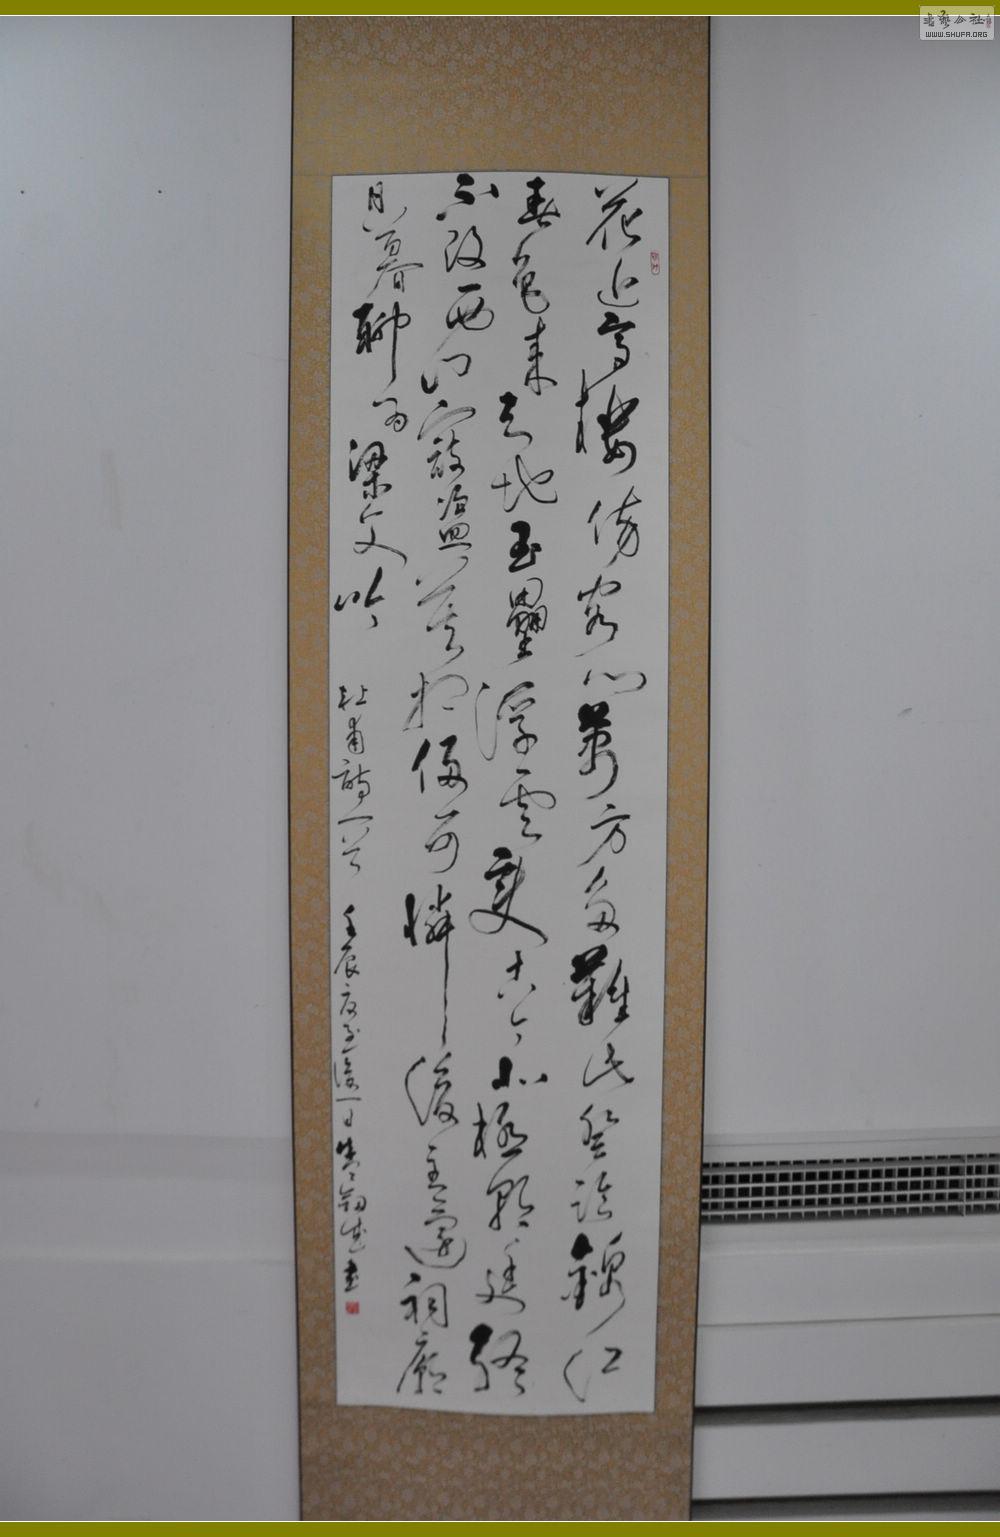 花近高楼傍客心万方多难此登临锦江
春色来天地玉垒浮云变古今北极朝廷终
不改西山寇盗莫相侵可怜后主还祠庙
日暮聊为梁父吟
杜甫诗一首 壬辰夏至后一日
WWW.SHUFA.ORG